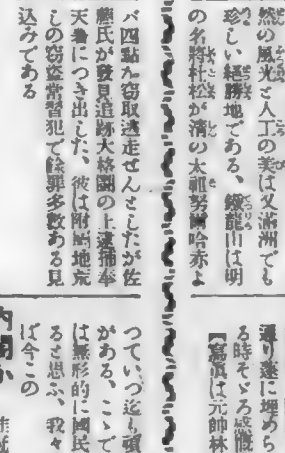 然の風光と人工の美は又滿洲でも
珍しい絶勝地である、鐵龍山は明
の名將杜松が淸の太祖努爾哈赤よ
パ四點を窃取逃走せんとしたが佐
藤氏が發見追跡大格鬪の上逮捕奉
天署につき出した、彼は附屬地荒
しの窃盜常習犯で餘罪多數ある見
込みである
通り遂に埋めら
る時そゞろ感慨
【寫眞は元帥林
つていつ迄も頭
がある、こゝで
は無形的に國民
ると思ふ、我々
ば今この
內閣か